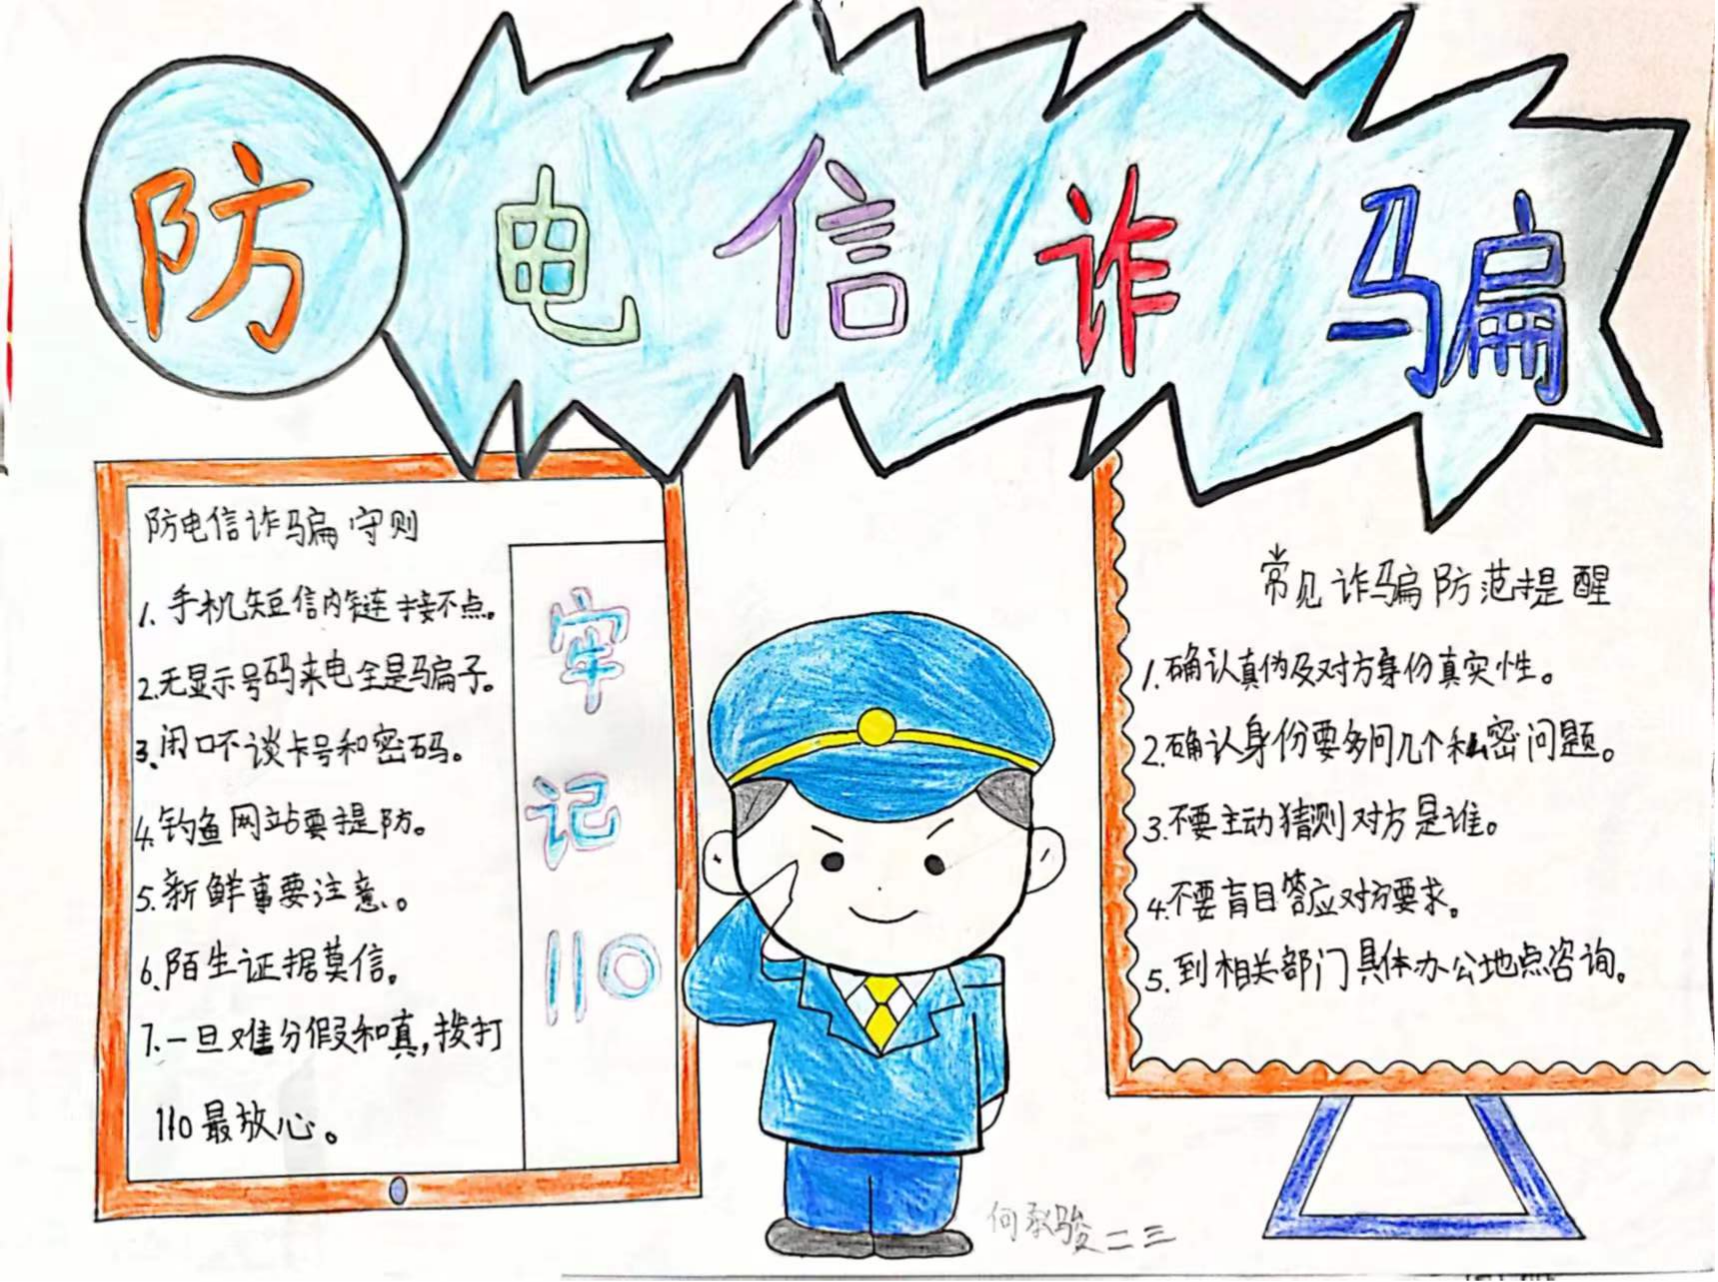 防电信诈骗
防电信诈骗守则
1.手机短信内链接不点。
2.无显示号码来电全是骗子。
3.闭口不谈卡号和密码。
4.钓鱼网站要提防。
5.新鲜事要注意。
6.陌生证据莫信。
7.一旦难分假和真,拨打
110最放心。
牢记110
常见诈骗防范提醒
1.确认真伪及对方身份真实性。
2.确认身份要多问几个私密问题。
3.不要主动猜测对方是谁。
4.不要盲目答应对方要求。
5.到相关部门具体办公地点咨询。
何承骏二三